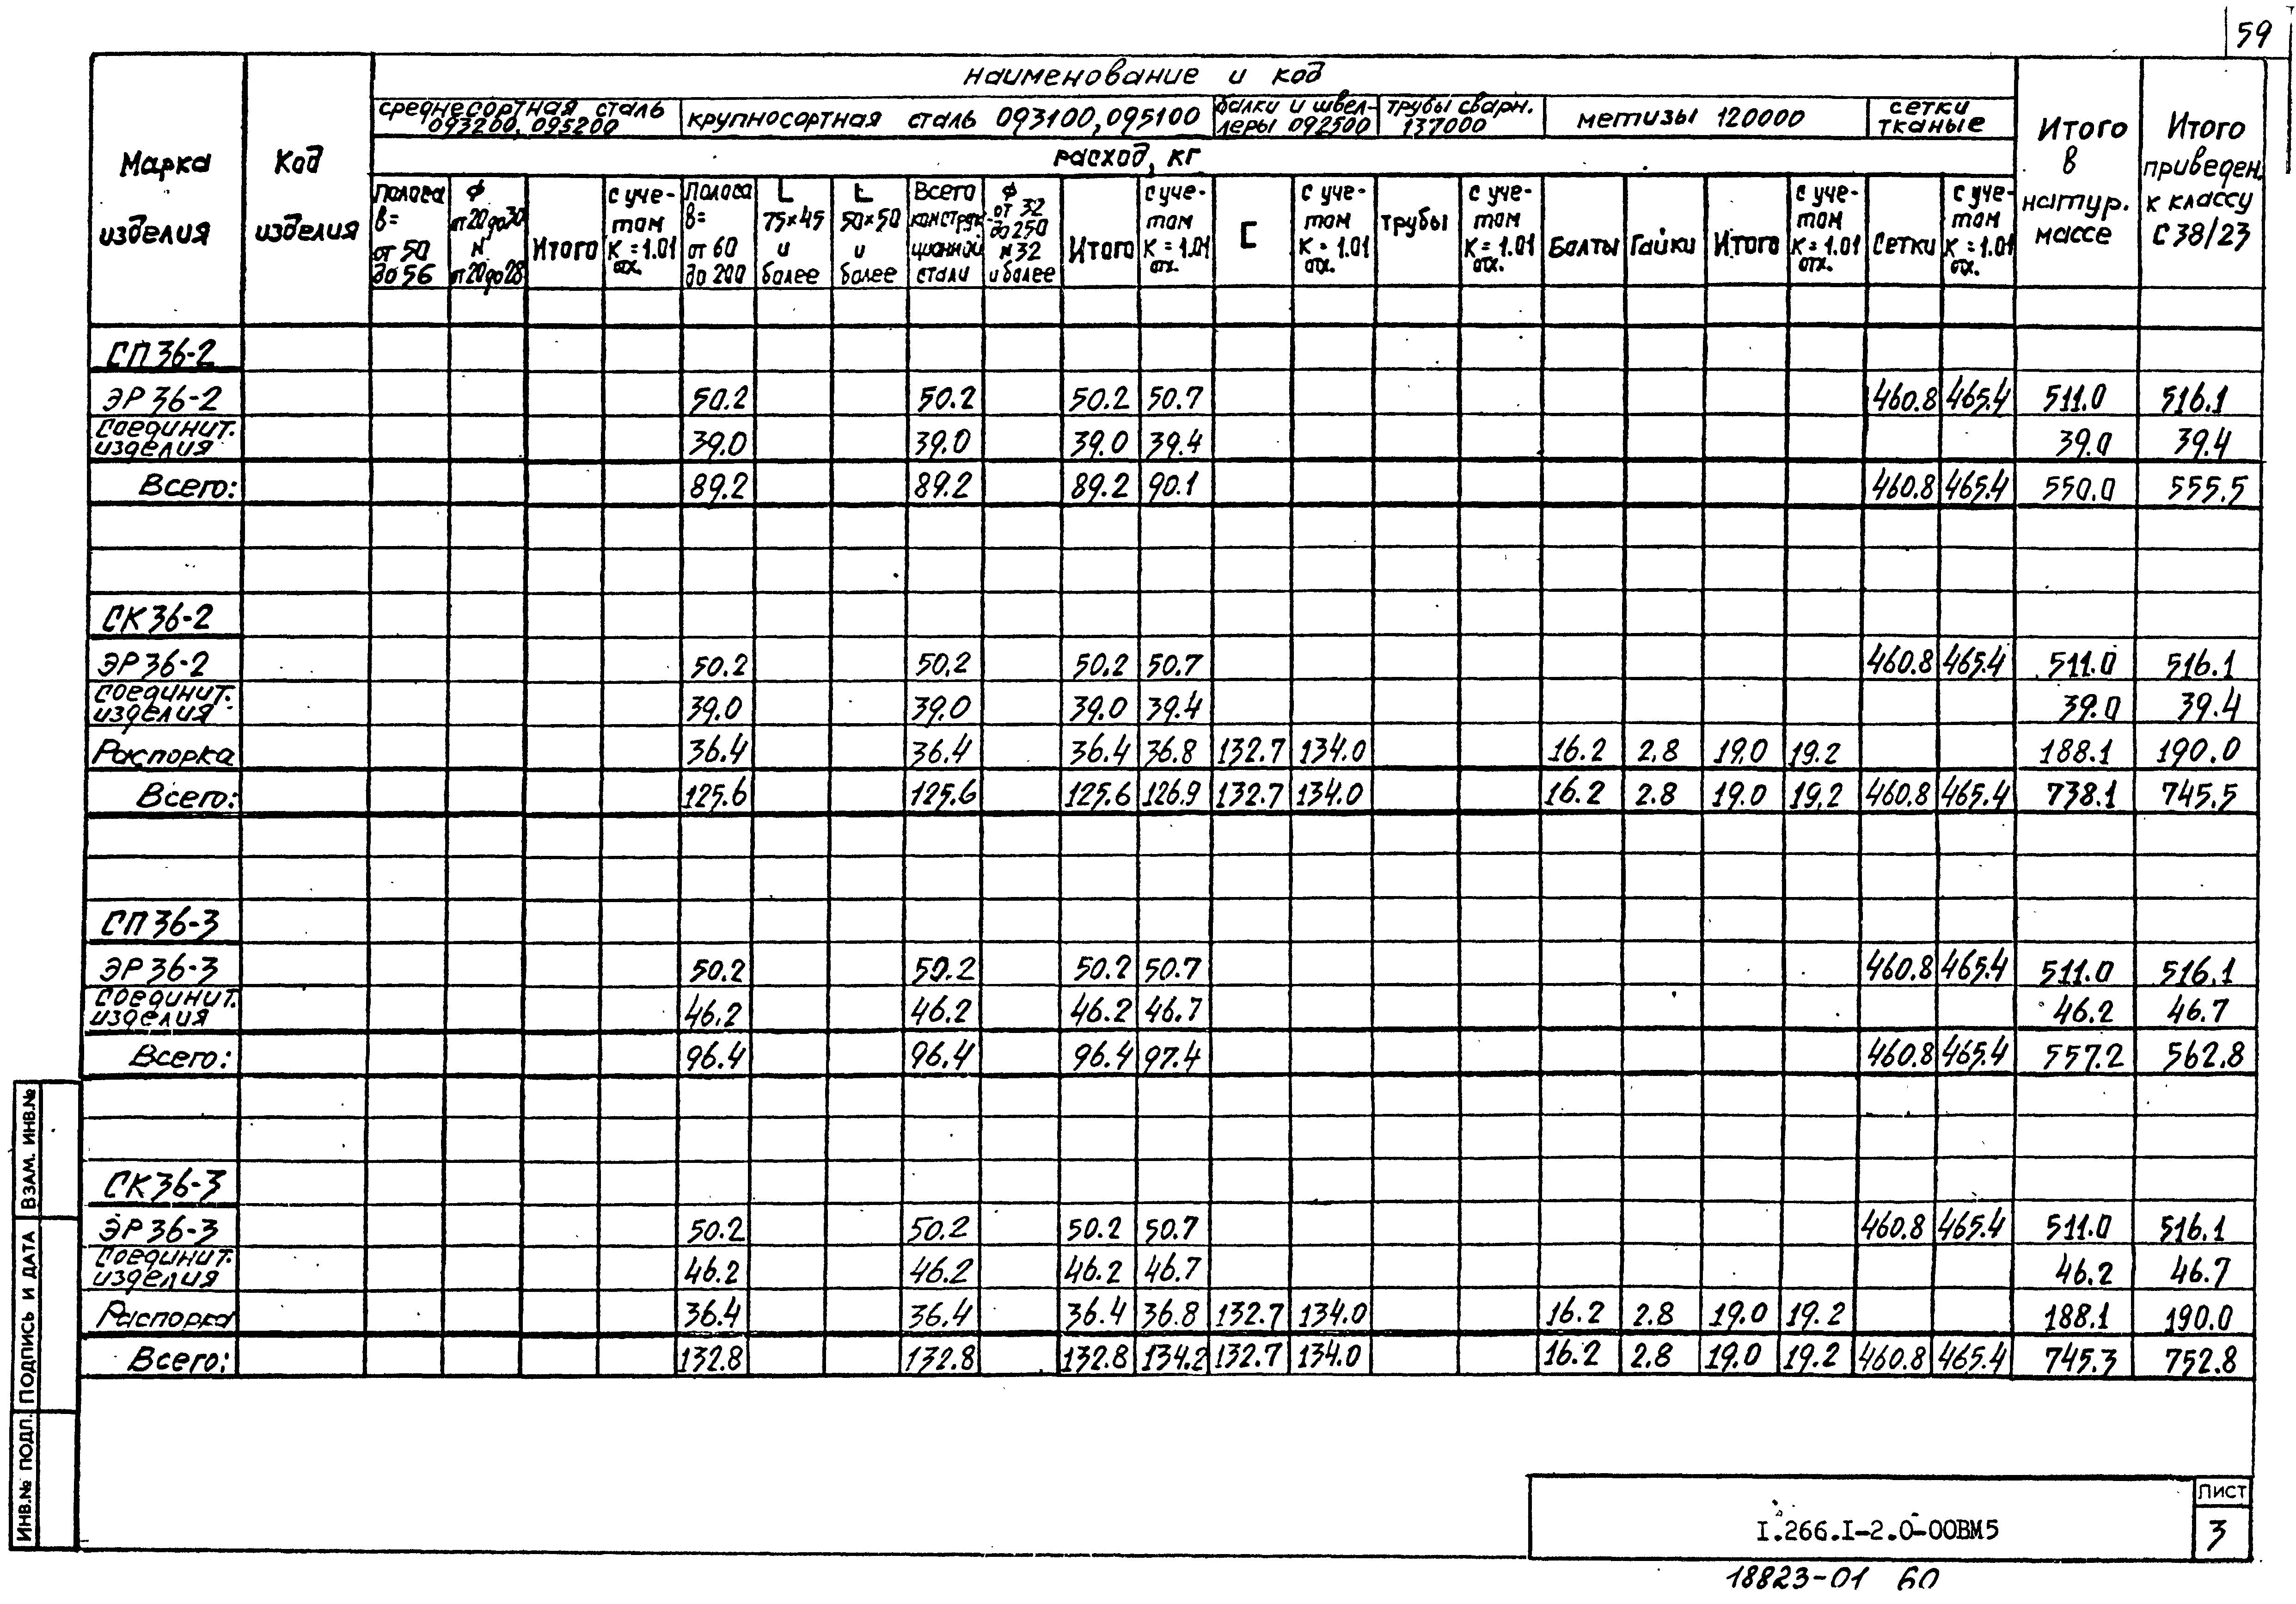 59
наименование и код
среднесортная сталь 093200, 095200
крупносортная сталь 093100, 095100
балки и швеллеры 092500
трубы сварн. 137000
метизы 120000
сетки тканые
Марка изделия
Код изделия
Итого в натур. массе
Итого приведен. к классу С 38/23
расход, кг
полоса В= от 50 до 56
ϕ от 20 до 30 N от 20 до 28
Итого
с учетом К=1.01 отх.
Полоса В= от 60 до 200
L 75×45 и более
L 50×50 и более
Всего конструкционной стали
ϕ от 32 до 250 N 32 и более
Итого
с учетом К=1.01 отх.
[
с учетом К=1.01 отх.
трубы
с учетом К=1.01 отх.
Болты
Гайки
Итого
с учетом К=1.01 отх.
Сетки
с учетом К=1.01 отх.
СП 36-2
ЭР 36-2 50.2 50.2 50.2 50.7 460.8 465.4 511.0 516.1
Соединит. изделия 39.0 39.0 39.0 39.4 39.0 39.4
Всего: 89.2 89.2 89.2 90.1 460.8 465.4 550.0 555.5
СК 36-2
ЭР 36-2 50.2 50.2 50.2 50.7 460.8 465.4 511.0 516.1
Соединит. изделия 39.0 39.0 39.0 39.4 39.0 39.4
Распорка 36.4 36.4 36.4 36.8 132.7 134.0 16.2 2.8 19.0 19.2 188.1 190.0
Всего: 125.6 125.6 125.6 126.9 132.7 134.0 16.2 2.8 19.0 19.2 460.8 465.4 738.1 745.5
СП 36-3
ЭР 36-3 50.2 50.2 50.2 50.7 460.8 465.4 511.0 516.1
Соединит. изделия 46.2 46.2 46.2 46.7 46.2 46.7
Всего: 96.4 96.4 96.4 97.4 460.8 465.4 557.2 562.8
СК 36-3
ЭР 36-3 50.2 50.2 50.2 50.7 460.8 465.4 511.0 516.1
Соединит. изделия 46.2 46.2 46.2 46.7 46.2 46.7
Распорка 36.4 36.4 36.4 36.8 132.7 134.0 16.2 2.8 19.0 19.2 188.1 190.0
Всего: 132.8 132.8 132.8 134.2 132.7 134.0 16.2 2.8 19.0 19.2 460.8 465.4 745.3 752.8
ИНВ.№ ПОДЛ. ПОДПИСЬ И ДАТА ВЗАМ. ИНВ.№
I.266.I-2.0-00ВМ5
ЛИСТ
3
18823-01 60